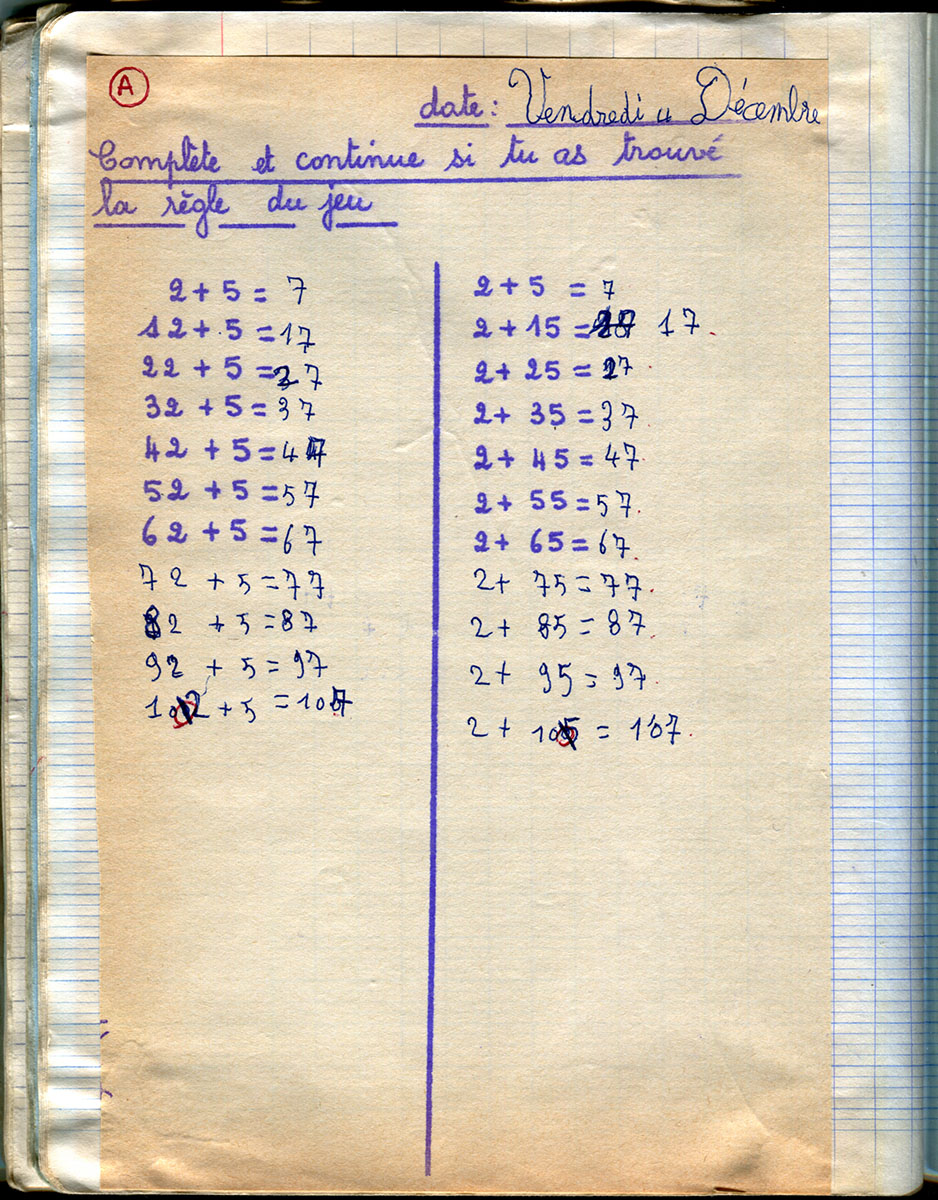 A
date: Vendredi 11 Décembre
Complète et continue si tu as trouvé
la règle du jeu
2 + 5 = 7
12 + 5 = 17
22 + 5 = 27
32 + 5 = 37
42 + 5 = 47
52 + 5 = 57
62 + 5 = 67
72 + 5 = 77
82 + 5 = 87
92 + 5 = 97
102 + 5 = 107
2 + 5 = 7
2 + 15 = 17.
2 + 25 = 27
2 + 35 = 37
2 + 45 = 47
2 + 55 = 57.
2 + 65 = 67.
2 + 75 = 77.
2 + 85 = 87.
2 + 95 = 97.
2 + 105 = 107.